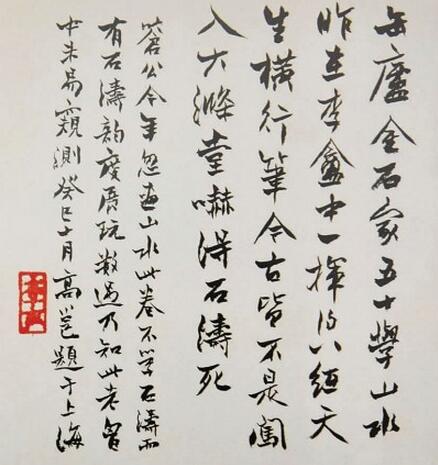 缶廬金石家五十學山水
昨在李盦中一揮得八紙天
生橫行筆今古皆不是闖
入大滌堂嚇得石濤死
蒼公今年忽畫山水此卷不學石濤而
有石濤韵度展玩數過乃知此老胸
中未易窺測癸巳十月高邕題于上海